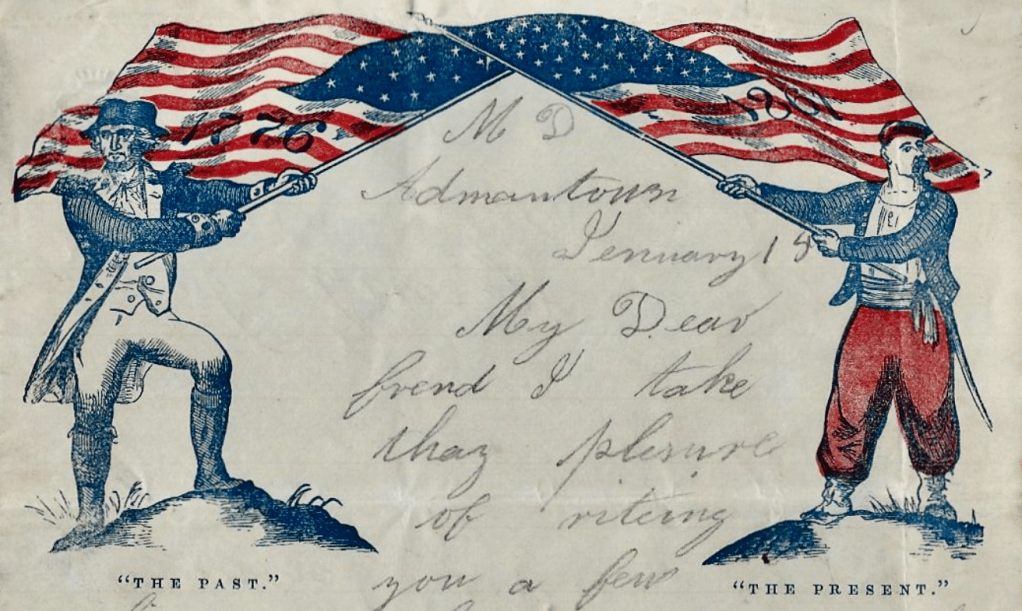 1776
1861
M D
Admantown
Jenuary 18
My Dear
frend I take
thaz plesure
of riteing
you a few
"THE PAST."
"THE PRESENT."